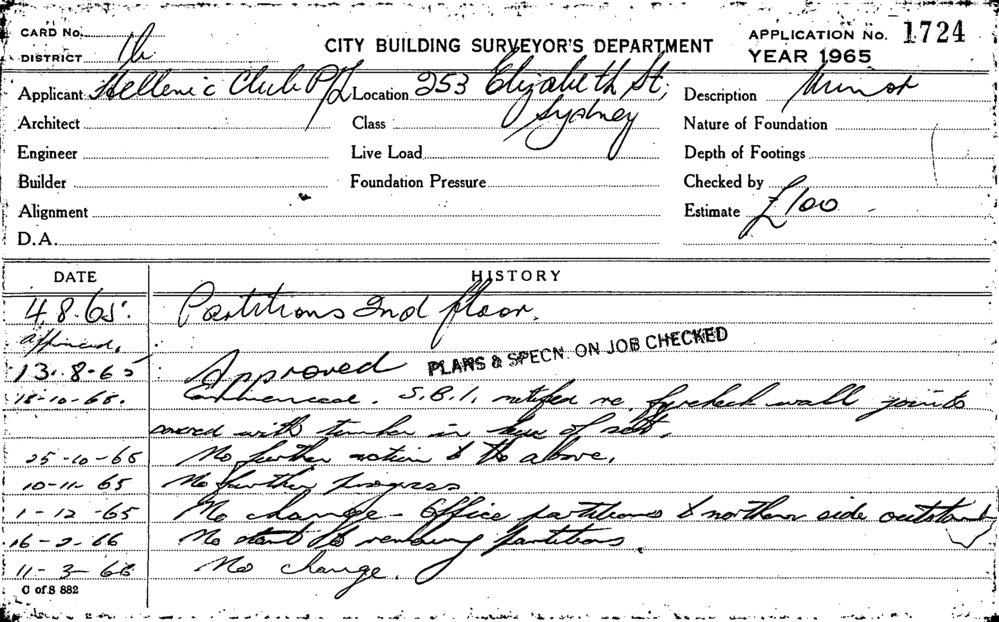 CARD No.
DISTRICT
CITY BUILDING SURVEYOR'S DEPARTMENT
APPLICATION No. 1724
YEAR 1965
Applicant Hellenic Club P/L Location 253 Elizabeth St, Sydney Description Minor
Architect Class Nature of Foundation
Engineer Live Load Depth of Footings
Builder Foundation Pressure Checked by
Alignment Estimate £100
D.A.
DATE HISTORY
4.8.65. Partitions 2nd floor.
approved.
13.8.65 Approved PLANS & SPECN. ON JOB CHECKED
18-10-65. Commenced. S.B.I. notified re. fyrchek wall joints
covered with timber in lieu of set.
25-10-65 No further action to the above.
10-11-65 No further progress
1-12-65 No change - Office partitions & northern side outstand
16-2-66 No start to remaining partitions
11-3-66 No change.
C of S 882